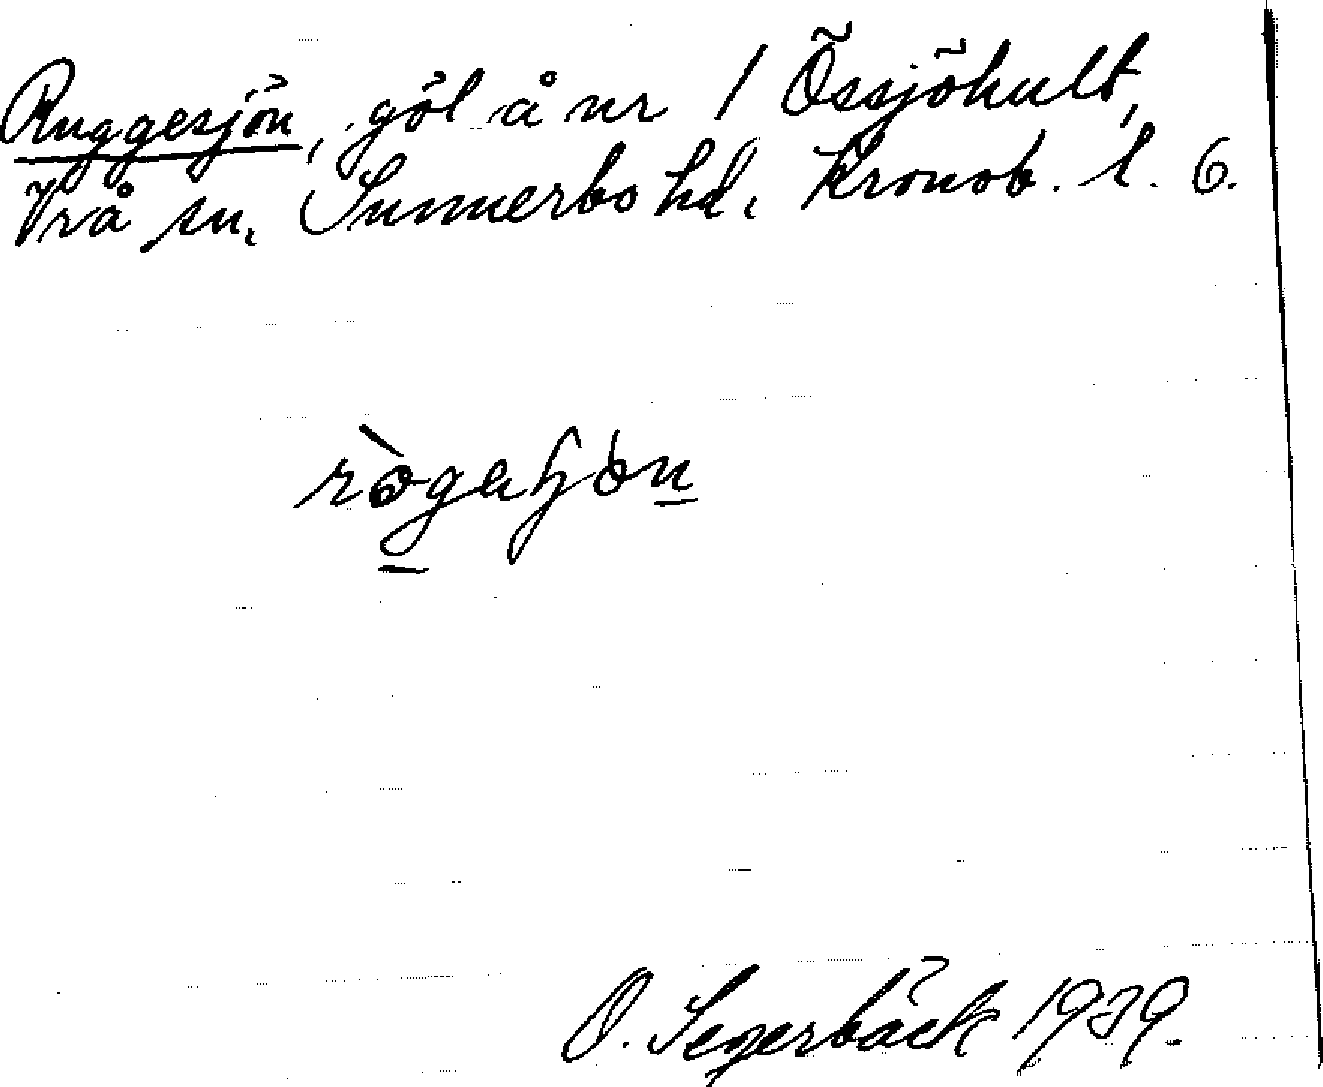 Ruggesjön, göl å nr 1 Össjöhult,
Vrå sn. Sunnerbo hd. Kronob. l. 6.
O. Segerbäck 1939.